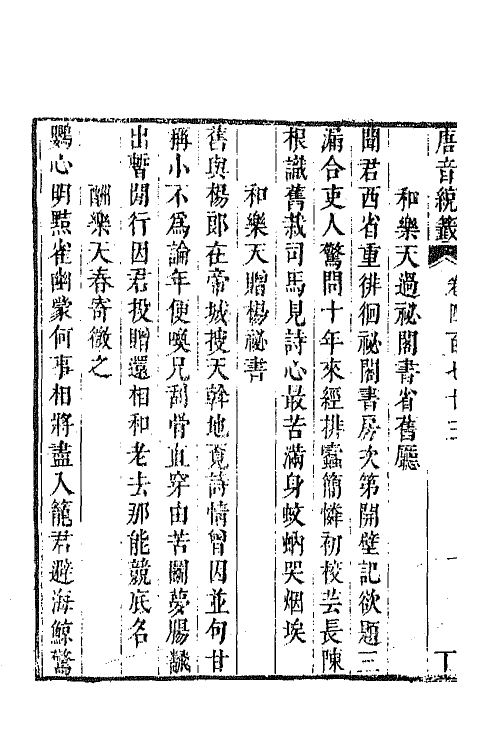 唐音統籤 卷四百七十三
和樂天過祕閣書省舊廳
聞君西省重徘徊祕閣書房次第開壁記欲題三
漏合吏人驚問十年來經排蠹簡憐初校芸長陳
根識舊栽司馬見詩心最苦滿身蚊蚋哭烟埃
和樂天贈楊祕書
舊與楊郎在帝城搜天斡地覓詩情曾因並句甘
稱小不爲論年便喚兄刮骨直穿由苦鬬夢腸翻
出暫閒行因君投贈還相和老去那能競底名
酬樂天春寄微之
鸚心明黠雀幽蒙何事相將盡入籠君避海鯨驚